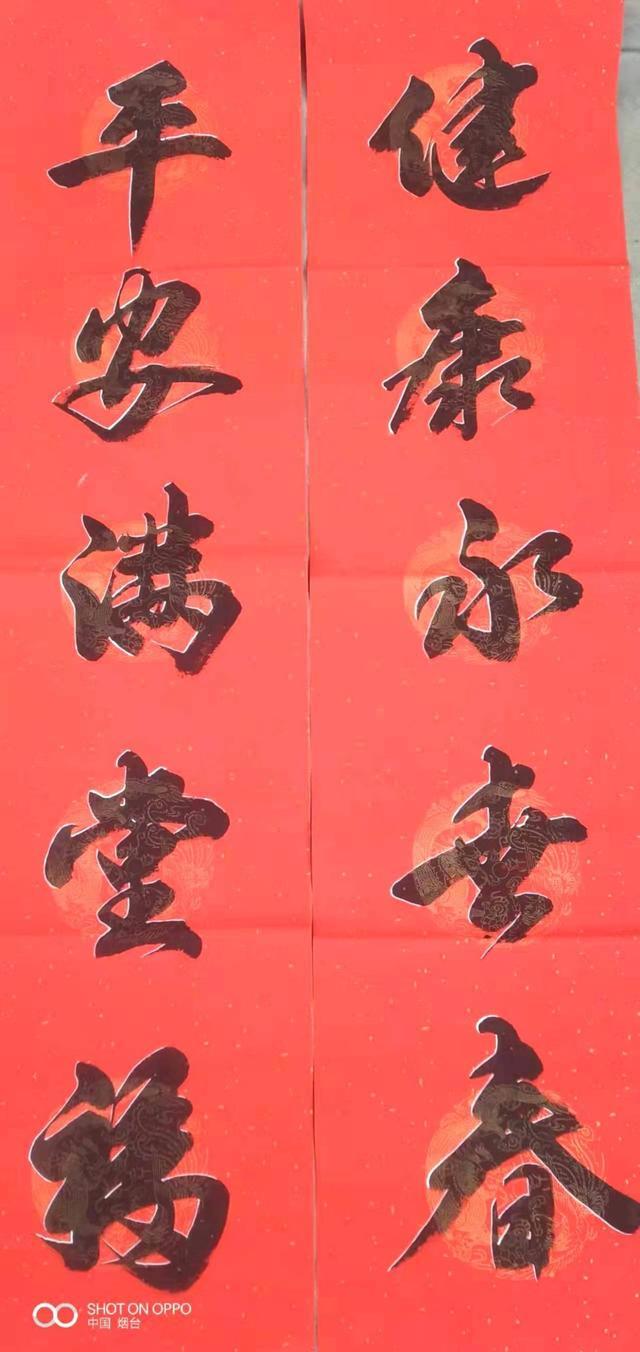 健康永世春
平安满堂福
SHOT ON OPPO
中国 烟台